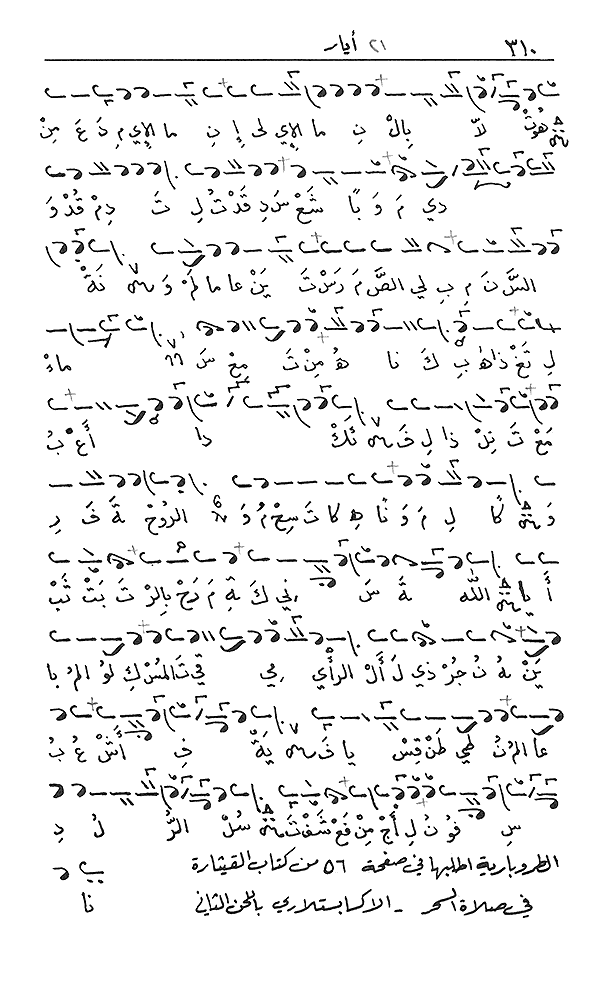 ٣١٠ ٢١ أيار
هُوتْ لَا بِالْ نِ ما الإي لحى إ نِ ما الإي مِ دَ عَ مِنْ
دي مَ وَ بًا شَعْ سَ دِ قَدْ تُ لِ تَ دِمْ قُدْ وَ
السَّ نَ مِ بِ لي الصَّ مَ رَسْ تَ يَنْ عا ما لَمْ وَ نَهْ
لِ تَغْ ذاهُ بِ كَ نا هُ مِنْ تَ مِعْ سَ ماءْ
مَعْ تَ تِلْ ذا لِ فَ نَكْ دا أَعْ بُ
وَ كًا لِ مَ وَ نًا هِ كا تَ سِحْ مُ وَ الروُحْ ةَ فَ رِ
أَ يا الله ةَ سَ ني كَ ةِ مَ رَحْ بِالرْ تَ بَتْ ثَبْ
يَنْ هُ نُ جُزْ ذي لَ أَلْ الرأي مي قي تَ المُسْ كِ لوُ المُ با
عا المُ نُ طي طَنْ قِسْ يا فَ يَةْ فِ أَشْ عُ بُ
سِ فوُ نُ لِ أَجْ مِنْ فَعْ شَفْ تَ سُلْ الرُّ لُ دِ
الطروبارية اطلبها في صفحة ٥٦ من كتاب القيثارة
في صلاة السحر - الاكسابستلاري باللحن الثاني نا